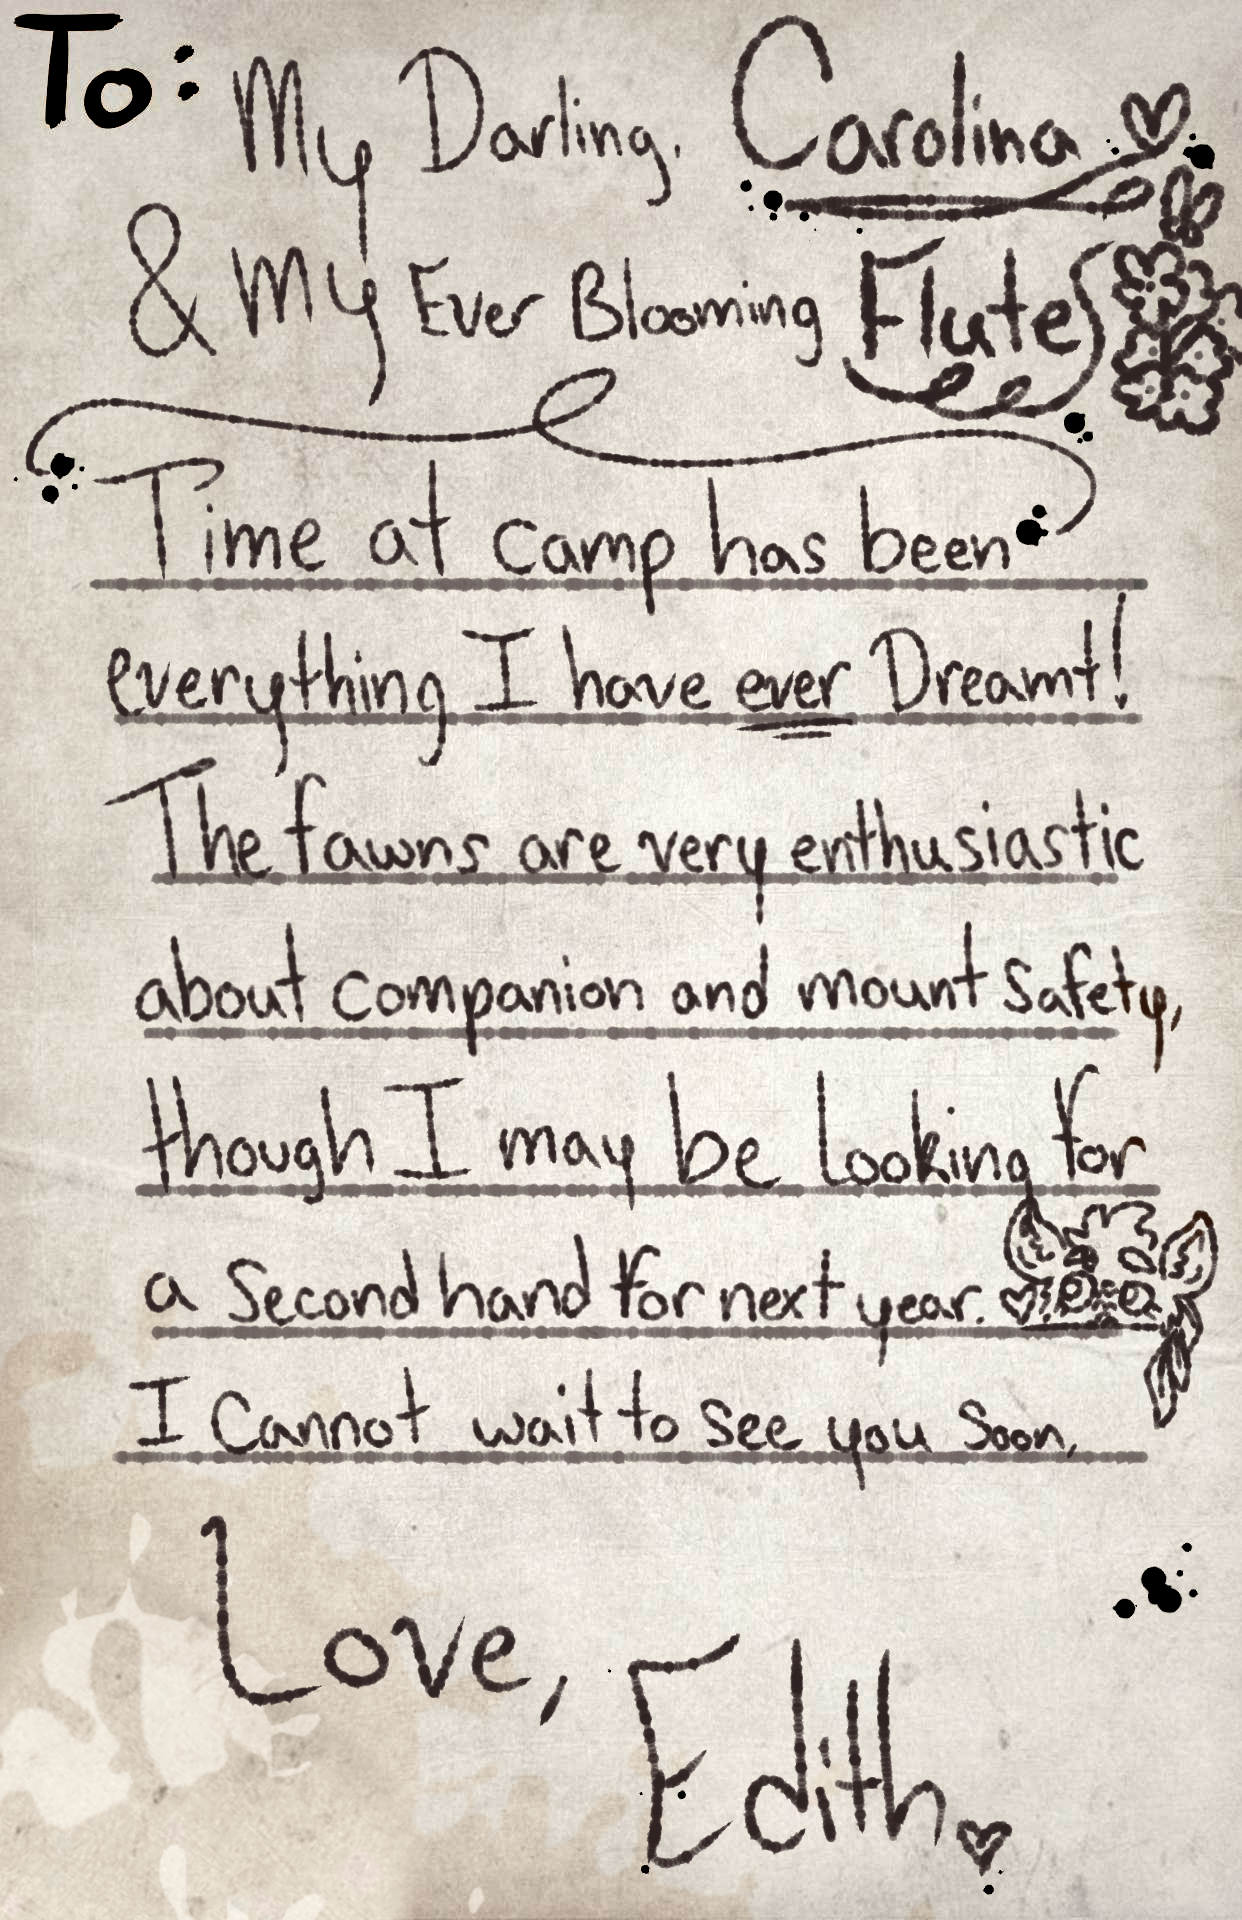 To: My Darling, Carolina
& My Ever Blooming Flute
Time at camp has been
everything I have ever Dreamt!
The fawns are very enthusiastic
about companion and mount Safety,
though I may be looking for
a Second hand for next year.
I Cannot wait to See you Soon,
Love,
Edith